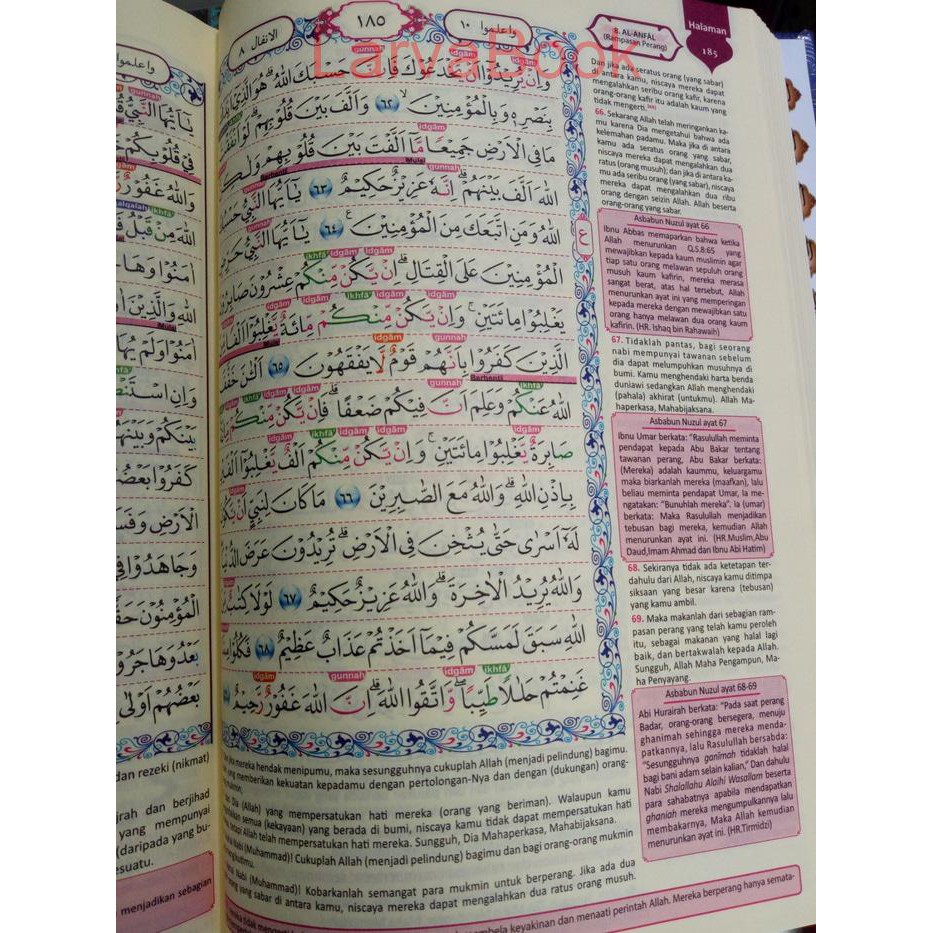 الانفال ٨
١٨٥
واعلموا ١٠
LarvaBook
بِنَصْرِهٖ وَبِالْمُؤْمِنِيْنَۙ ٦٢ وَاَلَّفَ بَيْنَ قُلُوْبِهِمْۗ لَوْ
مَا فِى الْاَرْضِ جَمِيْعًا مَّآ اَلَّفْتَ بَيْنَ قُلُوْبِهِمْ
اللّٰهَ اَلَّفَ بَيْنَهُمْۗ اِنَّهٗ عَزِيْزٌ حَكِيْمٌ ٦٣ يٰٓاَيُّهَا النَّبِيُّ
اللّٰهُ وَمَنِ اتَّبَعَكَ مِنَ الْمُؤْمِنِيْنَ ٦٤ يٰٓاَيُّهَا النَّبِيُّ
الْمُؤْمِنِيْنَ عَلَى الْقِتَالِۗ اِنْ يَّكُنْ مِّنْكُمْ عِشْرُوْنَ
يَغْلِبُوْا مِائَتَيْنِۚ وَاِنْ يَّكُنْ مِّنْكُمْ مِّائَةٌ يَّغْلِبُوْٓا
الَّذِيْنَ كَفَرُوْا بِاَنَّهُمْ قَوْمٌ لَّا يَفْقَهُوْنَ ٦٥
اللّٰهُ عَنْكُمْ وَعَلِمَ اَنَّ فِيْكُمْ ضَعْفًاۗ فَاِنْ يَّكُنْ مِّنْكُمْ
صَابِرَةٌ يَّغْلِبُوْا مِائَتَيْنِۚ وَاِنْ يَّكُنْ مِّنْكُمْ اَلْفٌ يَّغْلِبُوْٓا
بِاِذْنِ اللّٰهِۗ وَاللّٰهُ مَعَ الصّٰبِرِيْنَ ٦٦ مَا كَانَ لِنَبِيٍّ
لَهٗٓ اَسْرٰى حَتّٰى يُثْخِنَ فِى الْاَرْضِۗ تُرِيْدُوْنَ عَرَضَ
وَاللّٰهُ يُرِيْدُ الْاٰخِرَةَۗ وَاللّٰهُ عَزِيْزٌ حَكِيْمٌ ٦٧ لَوْلَا
اللّٰهِ سَبَقَ لَمَسَّكُمْ فِيْمَآ اَخَذْتُمْ عَذَابٌ عَظِيْمٌ ٦٨
غَنِمْتُمْ حَلٰلًا طَيِّبًاۖ وَّاتَّقُوا اللّٰهَۗ اِنَّ اللّٰهَ غَفُوْرٌ رَّحِيْمٌ
8. AL-ANFĀL
(Rampasan Perang)
Halaman
185
Dan jika ada seratus orang (yang sabar)
di antara kamu, niscaya mereka dapat
mengalahkan seribu orang kafir, karena
orang-orang kafir itu adalah kaum yang
tidak mengerti.
66. Sekarang Allah telah meringankan ka-
mu karena Dia mengetahui bahwa ada
kelemahan padamu. Maka jika di antara
kamu ada seratus orang yang sabar,
niscaya mereka dapat mengalahkan dua
ratus (orang musuh); dan jika di antara ka-
mu ada seribu orang (yang sabar), niscaya
mereka dapat mengalahkan dua ribu
orang dengan seizin Allah. Allah beserta
orang-orang yang sabar.
Asbabun Nuzul ayat 66
Ibnu Abbas memaparkan bahwa ketika
Allah menurunkan Q,S.8:65 yang
mewajibkan kepada kaum muslimin agar
tiap satu orang melawan sepuluh orang
musuh kaum kafirin, mereka merasa
sangat berat, atas hal tersebut, Allah
menurunkan ayat ini yang memperingan
kepada mereka dengan mewajibkan satu
orang hanya melawan dua orang kaum
kafirin. (HR. Ishaq bin Rahawaih)
67. Tidaklah pantas, bagi seorang
nabi mempunyai tawanan sebelum
dia dapat melumpuhkan musuhnya di
bumi. Kamu menghendaki harta benda
duniawi sedangkan Allah menghendaki
(pahala) akhirat (untukmu). Allah Ma-
haperkasa, Mahabijaksana.
Asbabun Nuzul ayat 67
Ibnu Umar berkata: "Rasulullah meminta
pendapat kepada Abu Bakar tentang
tawanan perang, Abu Bakar berkata:
(Mereka) adalah kaummu, keluargamu
maka biarkanlah mereka (maafkan), lalu
beliau meminta pendapat Umar, Ia me-
ngatakan: "Bunuhlah mereka". Ia (umar)
berkata: Maka Rasulullah menjadikan
tebusan bagi mereka, kemudian Allah
menurunkan ayat ini. (HR.Muslim,Abu
Daud,Imam Ahmad dan Ibnu Abi Hatim)
68. Sekiranya tidak ada ketetapan ter-
dahulu dari Allah, niscaya kamu ditimpa
siksaan yang besar karena (tebusan)
yang kamu ambil.
69. Maka makanlah dari sebagian ram-
pasan perang yang telah kamu peroleh
itu, sebagai makanan yang halal lagi
baik, dan bertakwalah kepada Allah.
Sungguh, Allah Maha Pengampun, Ma-
ha Penyayang.
Asbabun Nuzul ayat 68-69
Abi Hurairah berkata: "Pada saat perang
Badar, orang-orang bersegera, menuju
ghanimah sehingga mereka menda-
patkannya, lalu Rasulullah bersabda:
"Sesungguhnya ganimah tidaklah halal
bagi bani adam selain kalian," Dan dahulu
Nabi Shalallahu Alaihi Wasallam beserta
para sahabatnya apabila mendapatkan
ghaniah mereka mengumpulkannya lalu
membakarnya, Maka Allah kemudian
menurunkan ayat ini. (HR.Tirmidzi)
jika mereka hendak menipumu, maka sesungguhnya cukuplah Allah (menjadi pelindung) bagimu.
yang memberikan kekuatan kepadamu dengan pertolongan-Nya dan dengan (dukungan) orang-
Dia (Allah) yang mempersatukan hati mereka (orang yang beriman). Walaupun kamu
semua (kekayaan) yang berada di bumi, niscaya kamu tidak dapat mempersatukan hati
tetapi Allah telah mempersatukan hati mereka. Sungguh, Dia Mahaperkasa, Mahabijaksana.
Nabi (Muhammad)! Cukuplah Allah (menjadi pelindung) bagimu dan bagi orang-orang mukmin
Nabi (Muhammad)! Kobarkanlah semangat para mukmin untuk berperang. Jika ada dua
orang yang sabar di antara kamu, niscaya mereka dapat mengalahkan dua ratus orang musuh.
membela keyakinan dan menaati perintah Allah. Mereka berperang hanya semata-
dan rezeki (nikmat)
dan berjihad
yang mempunyai
(daripada yang bu-
menjadikan sebagian